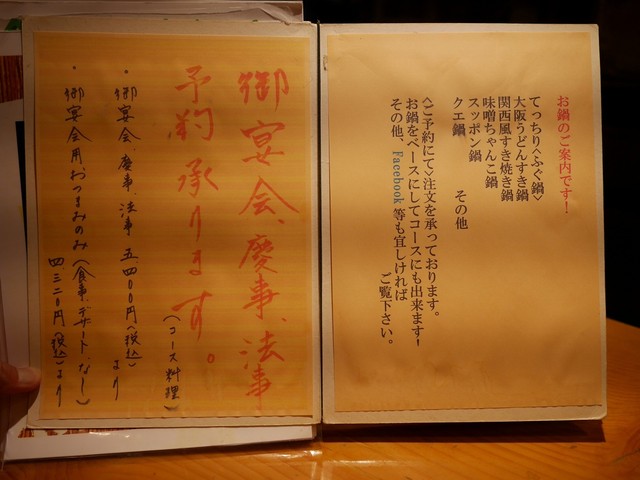 お鍋のご案内です!
てっちり<ふぐ鍋>
大阪うどんすき鍋
関西風すき焼き鍋
味噌ちゃんこ鍋
スッポン鍋
クエ鍋 その他
<ご予約にて>注文を承っております。
お鍋をベースにしてコースにも出来ます!
その他、Facebook等も宜しければ
ご覧下さい。
御宴会、慶事、法事
予約承ります。
(コース料理)
・御宴会、慶事、法事 五、四〇〇円(税込)より
・御宴会用おつまみのみ(食事、デザートなし)
四、三二〇円(税込)より